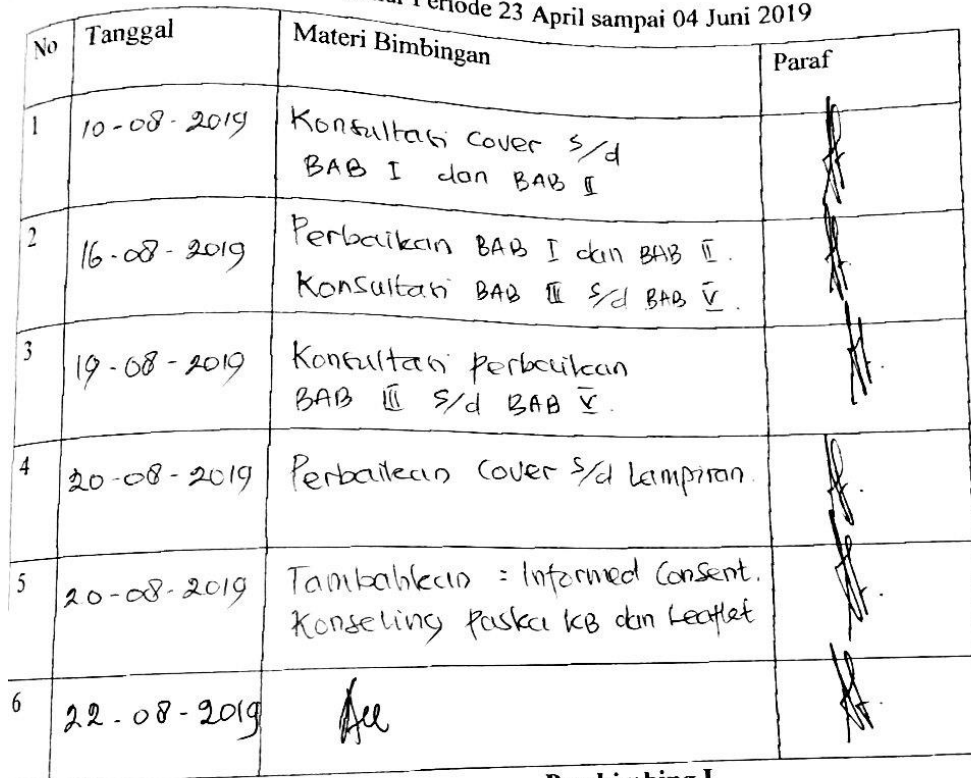 Periode 23 April sampai 04 Juni 2019
No Tanggal Materi Bimbingan Paraf
1 10-08-2019 Konsultasi Cover s/d
BAB I dan BAB II
2 16-08-2019 Perbaikan BAB I dan BAB II.
Konsultasi BAB III s/d BAB V.
3 19-08-2019 Konsultasi perbaikan
BAB III s/d BAB V.
4 20-08-2019 Perbaikan Cover s/d Lampiran.
5 20-08-2019 Tambahkan : Informed Consent.
Konseling Paska KB dan Leaflet
6 22-08-2019 Acc
Pembimbing I